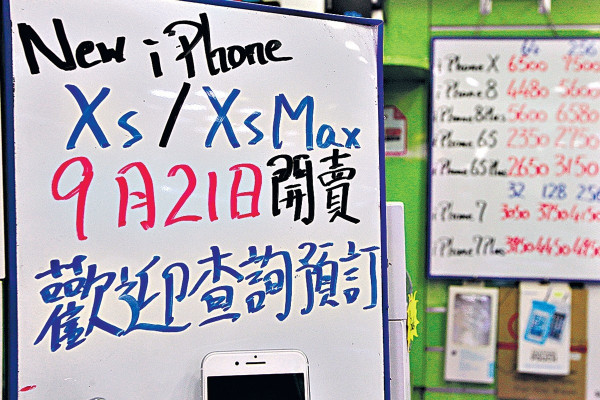 New iPhone
Xs/XsMax
9月21日開賣
歡迎查詢預訂
64 256
iPhone X 6500 7500
iPhone 8 4480 5600
iPhone 8Plus 5600 6580
iPhone 6S 2350 2750
iPhone 6S Plus 2650 3150
32 128 256
iPhone 7 3050 3750 4150
iPhone 7 Plus 3850 4450 4850